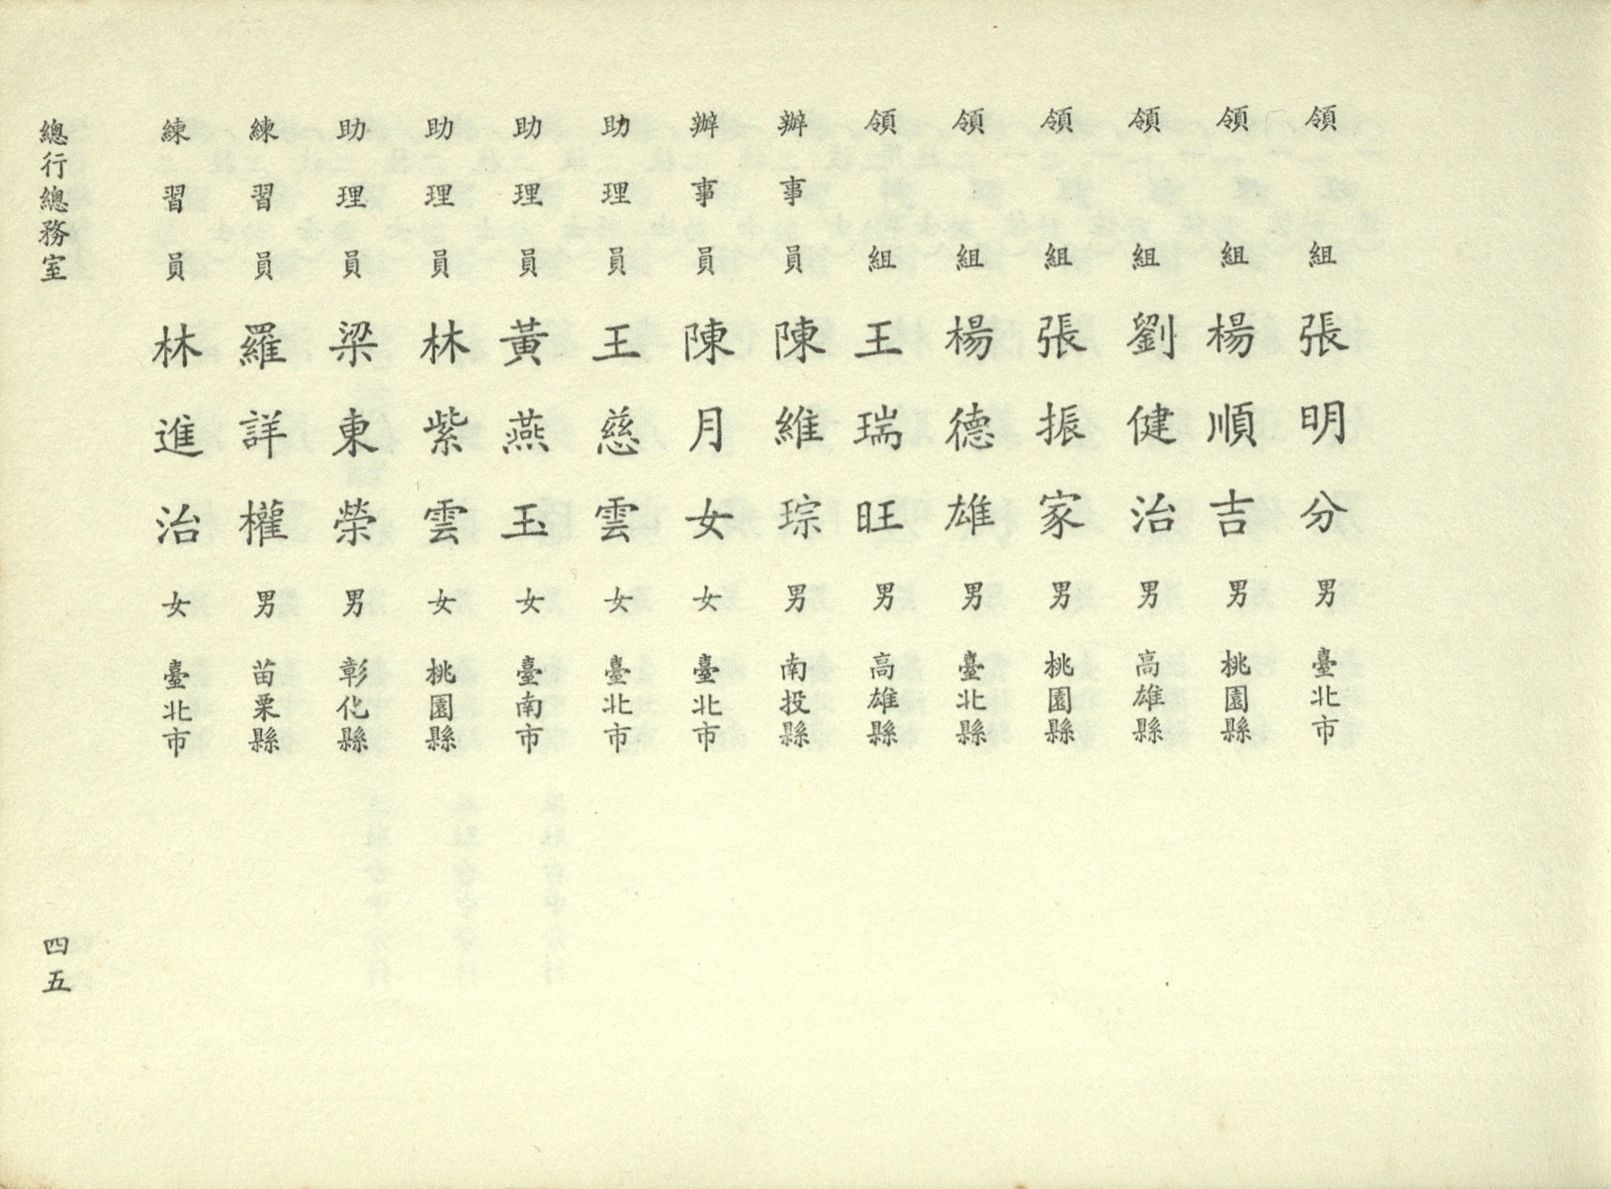 領組 張明分 男 臺北市
領組 楊順吉 男 桃園縣
領組 劉健治 男 高雄縣
領組 張振家 男 桃園縣
領組 楊德雄 男 臺北縣
領組 王瑞旺 男 高雄縣
辦事員 陳維琮 男 南投縣
辦事員 陳月女 女 臺北市
助理員 王慈雲 女 臺北市
助理員 黃燕玉 女 臺南市
助理員 林紫雲 女 桃園縣
助理員 梁東榮 男 彰化縣
練習員 羅詳權 男 苗栗縣
練習員 林進治 女 臺北市
總行總務室
四五